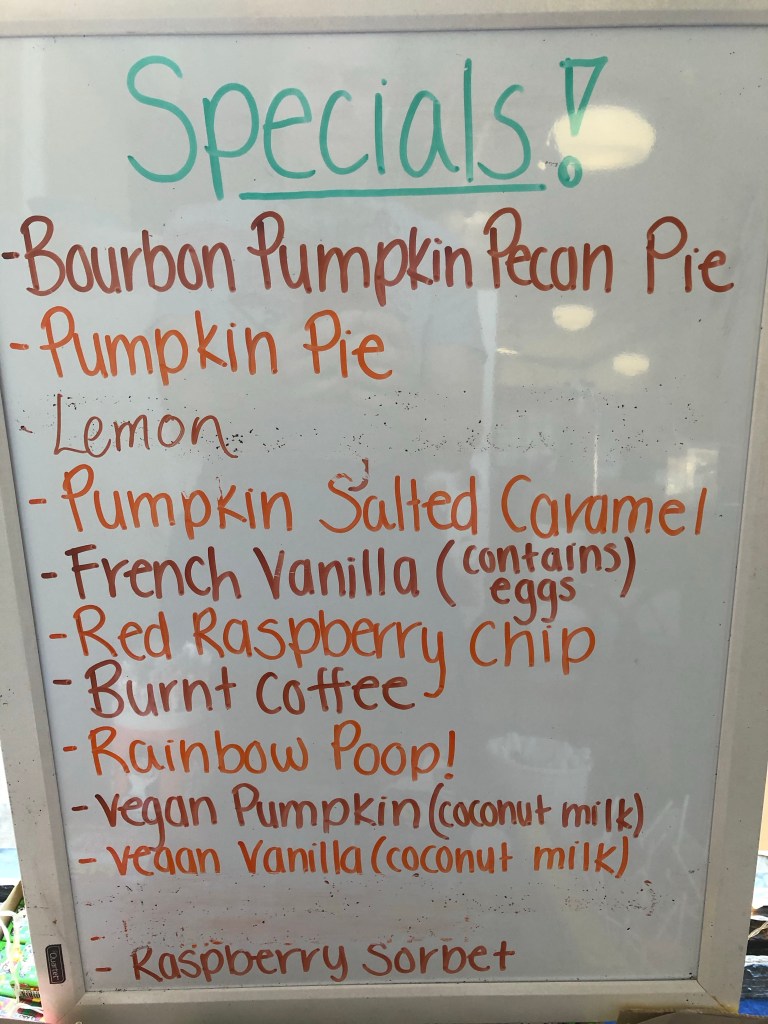 Specials!
- Bourbon Pumpkin Pecan Pie
- Pumpkin Pie
- Lemon
- Pumpkin Salted Caramel
- French Vanilla (contains eggs)
- Red Raspberry Chip
- Burnt Coffee
- Rainbow Poop!
- vegan Pumpkin (coconut milk)
- vegan Vanilla (coconut milk)
- Raspberry Sorbet
Quartet